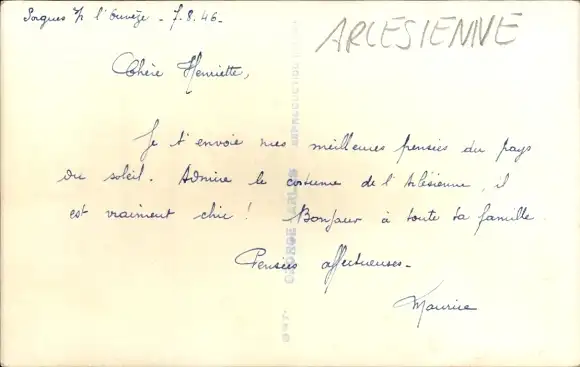 Sorgues s/ l'Ouvèze - 7.8.46 -
ARLESIENNE
Chère Henriette,
Je t'envoie mes meilleures pensées du pays
du soleil. Admire le costume de l'Arlésienne, il
est vraiment chic ! Bonjour à toute ta famille.
Pensées affectueuses -
Maurice
GEORGE ARLES
REPRODUCTION